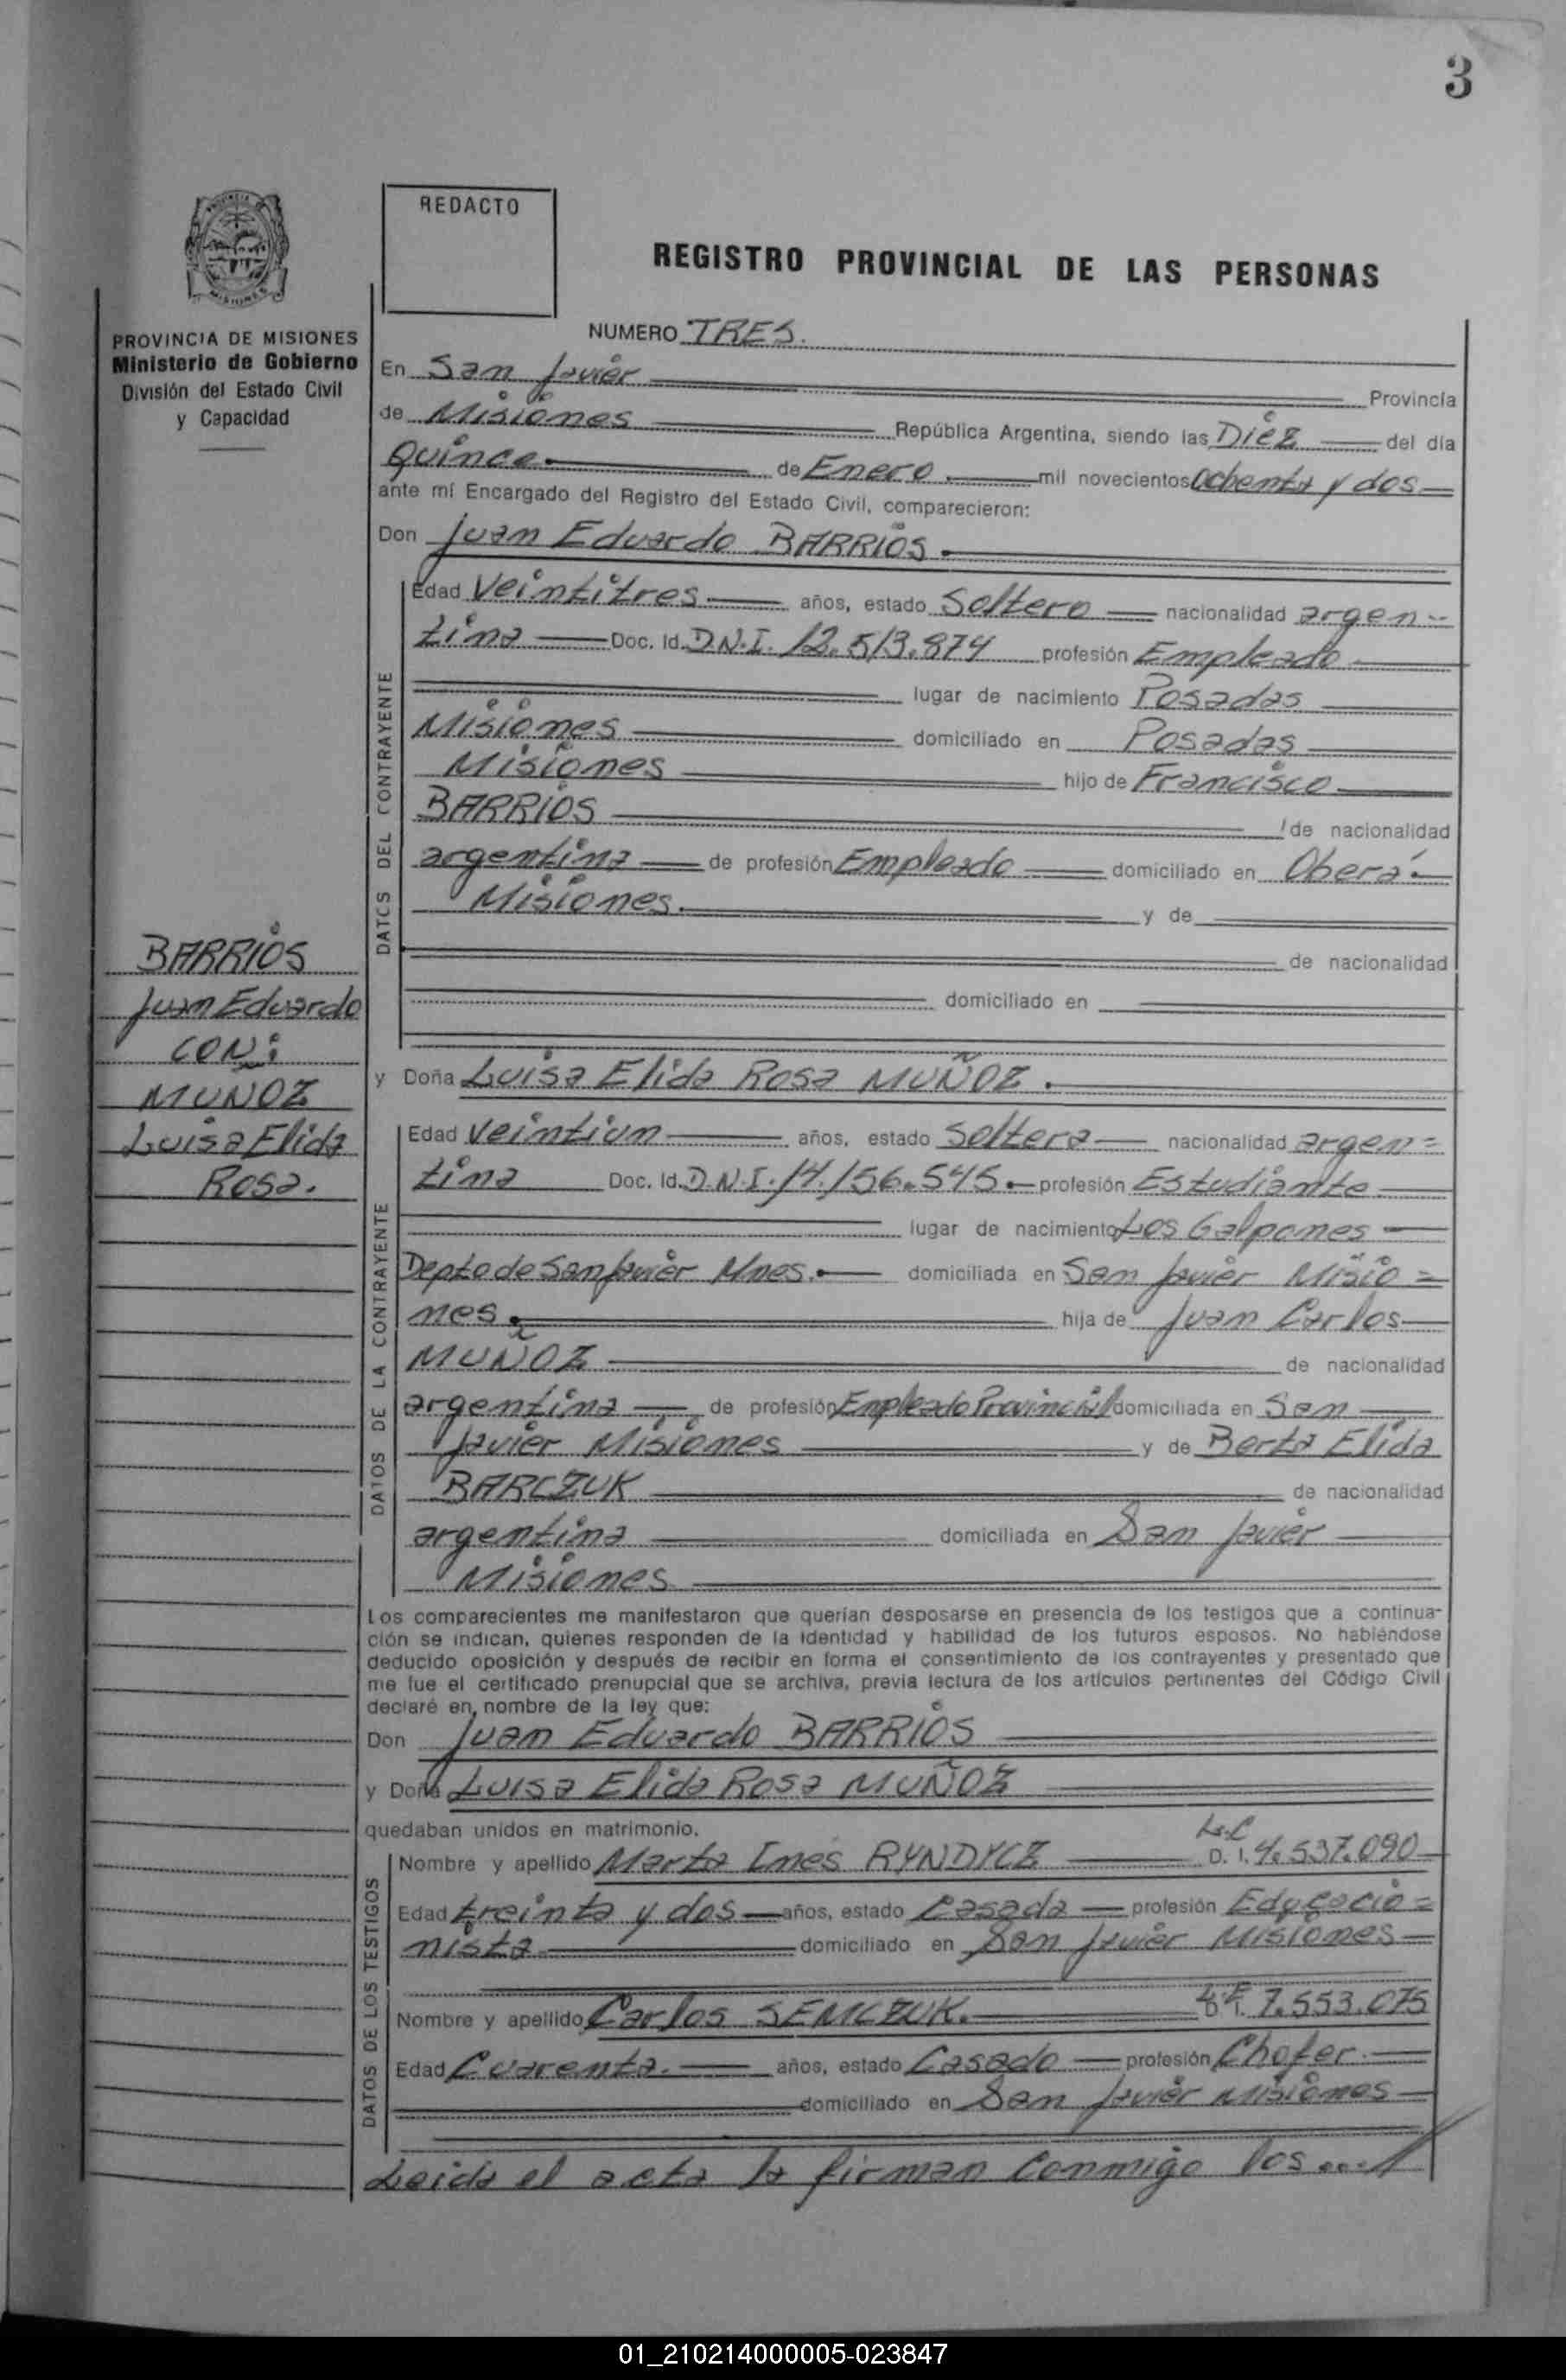 3
REDACTO
REGISTRO PROVINCIAL DE LAS PERSONAS
PROVINCIA DE MISIONES
Ministerio de Gobierno
División del Estado Civil
y Capacidad
NUMERO TRES.
En San Javier Provincia
de Misiones República Argentina, siendo las Diez del día
Quince de Enero mil novecientos ochenta y dos
ante mí Encargado del Registro del Estado Civil, comparecieron:
Don Juan Eduardo BARRIOS.
Edad Veintitres años, estado Soltero nacionalidad argen-
tina Doc. Id. D.N.I. 12.513.874 profesión Empleado
lugar de nacimiento Posadas
Misiones domiciliado en Posadas
Misiones hijo de Francisco
BARRIOS de nacionalidad
argentina de profesión Empleado domiciliado en Oberá.
Misiones. y de
de nacionalidad
domiciliado en
DATOS DEL CONTRAYENTE
BARRIOS
Juan Eduardo
CON:
MUÑOZ
Luisa Elida
Rosa.
y Doña Luisa Elida Rosa MUÑOZ.
Edad Veintiun años, estado Soltera nacionalidad argen=
tina Doc. Id. D.N.I. 14.156.545. profesión Estudiante
lugar de nacimiento Los Galpones
Depto de San Javier Mnes. domiciliada en San Javier Misio=
nes. hija de Juan Carlos
MUÑOZ de nacionalidad
argentina de profesión Empleado Provincial domiciliada en San
Javier Misiones y de Berta Elida
BARCZUK de nacionalidad
argentina domiciliada en San Javier
Misiones
DATOS DE LA CONTRAYENTE
Los comparecientes me manifestaron que querían desposarse en presencia de los testigos que a continua-
ción se indican, quienes responden de la identidad y habilidad de los futuros esposos. No habiéndose
deducido oposición y después de recibir en forma el consentimiento de los contrayentes y presentado que
me fue el certificado prenupcial que se archiva, previa lectura de los artículos pertinentes del Código Civil
declaré en nombre de la ley que:
Don Juan Eduardo BARRIOS
y Doña Luisa Elida Rosa MUÑOZ
quedaban unidos en matrimonio.
Nombre y apellido Marta Ines RYNDYCZ L.C. D. I. 4.537.090
Edad treinta y dos años, estado Casada profesión Educacio=
nista domiciliado en San Javier Misiones
Nombre y apellido Carlos SEMCZUK. L.E. D. I. 7.553.075
Edad Cuarenta. años, estado Casado profesión Chofer.
domiciliado en San Javier Misiones
DATOS DE LOS TESTIGOS
Leida el acta la firman conmigo los
01_210214000005-023847